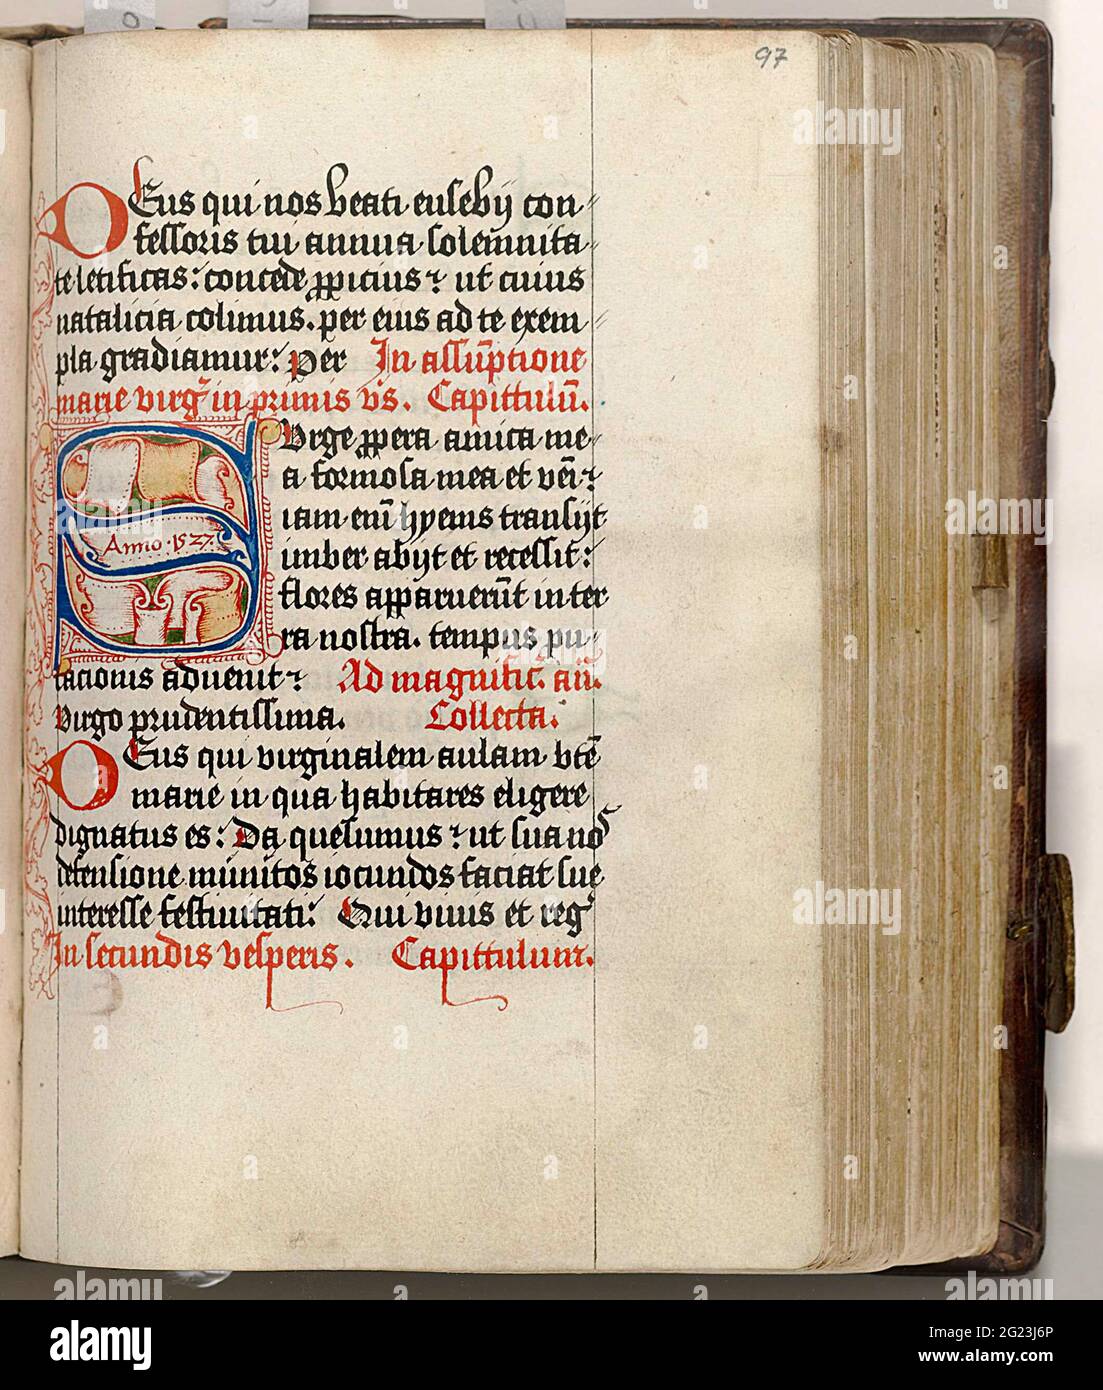 97
Deus qui nos beati eusebij con
fessoris tui annua solemnita
te letificas: concede ꝓpicius ut cuius
natalicia colimus. per eius ad te exem
pla gradiamur: per In assūptione
marie virg in primis vs. Capittulū.
Surge ꝓpera amica me
a formosa mea et veni
iam enī hyems transijt
imber abijt et recessit:
Anno 1527
flores apparuerūt in ter
ra nostra. tempus pu
tacionis aduenit Ad magnific. an̄.
Virgo prudentissima. Collecta.
Deus qui virginalem aulam bt̄e
marie in qua habitares eligere
dignatus es: Da quesumus ut sua nos
defensione munitos iocundos faciat sue
interesse festiuitati: Qui viuis et reg
In secundis vesperis. Capittulum.
alamy
Image ID: 2G23J6P
www.alamy.com